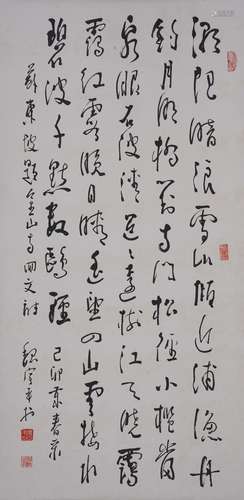 潮随暗浪雪山倾远浦渔舟
钓月明桥对寺门松径小槛当
泉眼石波清迢迢远树江天晓霭
霭红霞晚日晴遥望四山云接水
碧波千点数鸥轻
苏东坡题金山寺回文诗 己卯年春